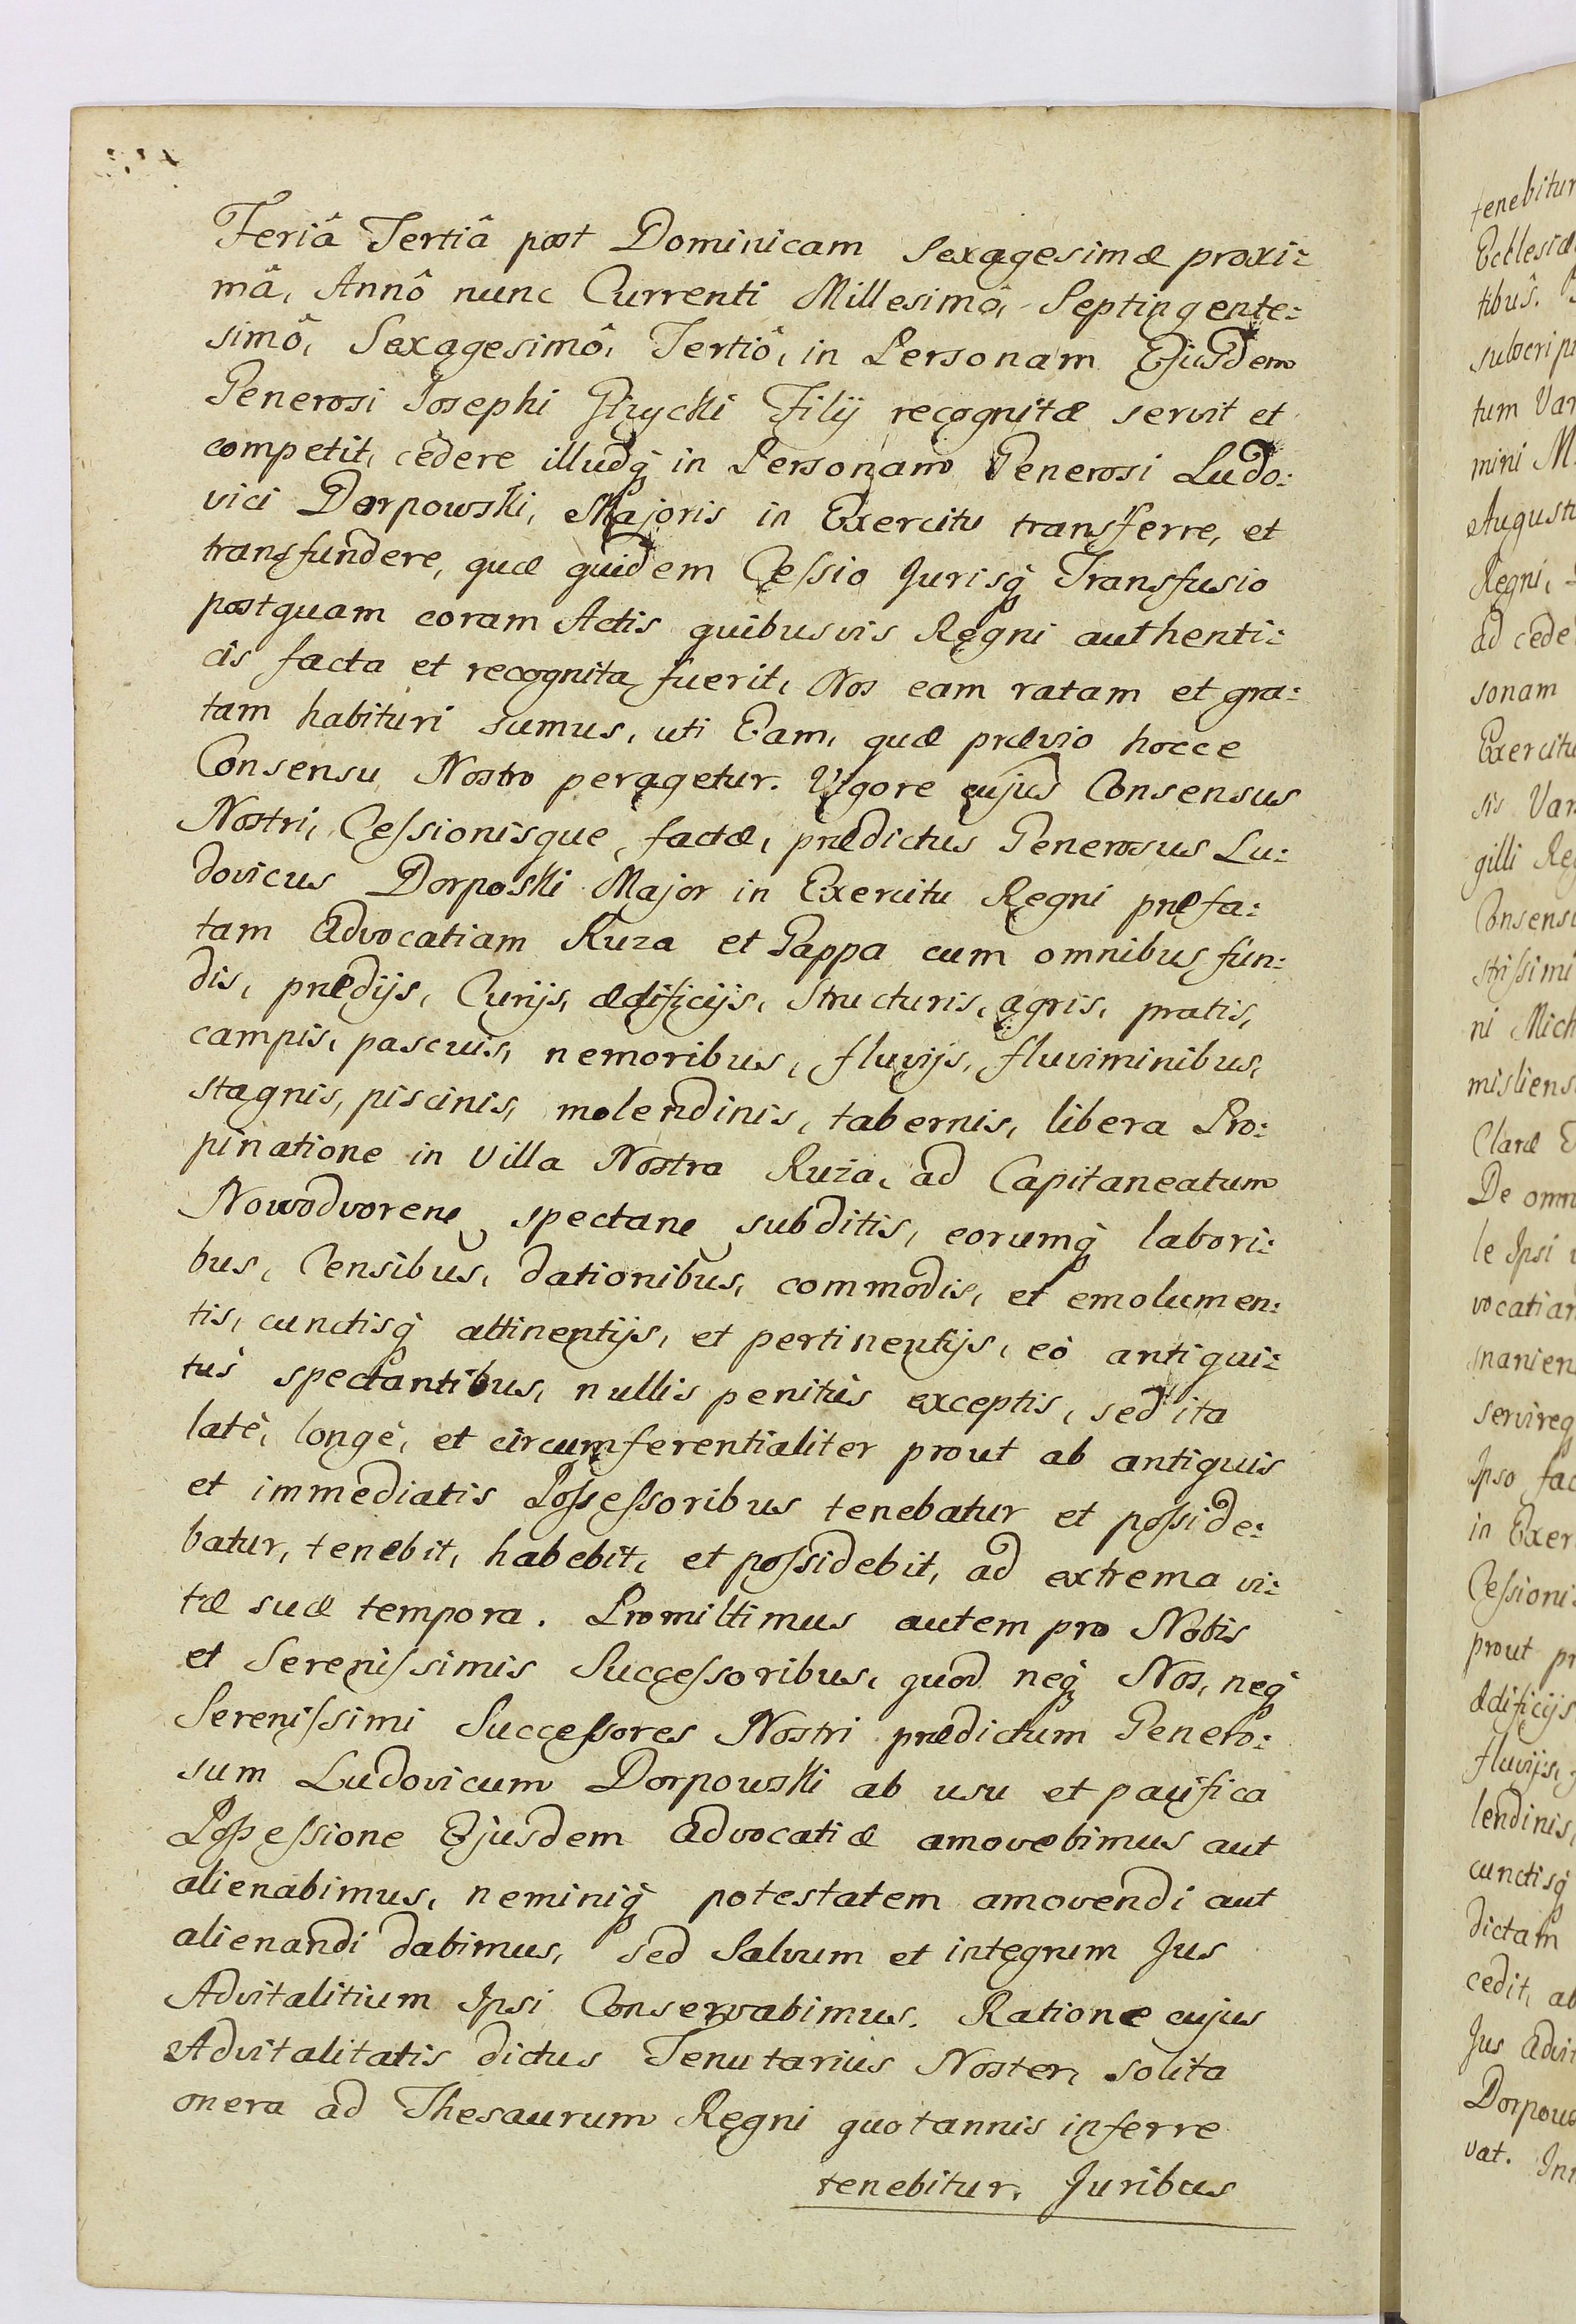 Feriâ Tertiâ post Dominicam Sexagesimæ proxi:
mâ, Annô nunc Currenti Millesimô, Septingente:
simô, Sexagesimô, Tertiô, in Personam Ejusdem
Generosi Josephi Giżycki Filij recognitæ servit et
competit, cedere illudq́ in Personam Generosi Ludo:
vici Dorpowski, Majoris in Exercitu transferre, et
transfundere, quæ quidem Cessio Jurisq́ Transfusio
postquam coram Actis quibusvis Regni authenti:
cis facta et recognita fuerit, Nos eam ratam et gra:
tam habituri sumus, uti Eam, quæ prævio hocce
Consensu Nostro peragetur. Vigore cujus Consensus
Nostri, Cessionisque factæ, prædictus Generosus Lu:
dovicus Dorposki Major in Exercitu Regni præfa:
tam Advocatiam Ruza et Gappa cum omnibus fun:
dis, prædijs, Curijs, ædificijs, structuris, agris, pratis,
campis, pascuis, nemoribus, fluvijs, fluviminibus,
stagnis, piscinis, molendinis, tabernis, libera Pro:
pinatione in Villa Nostra Ruża, ad Capitaneatum
Nowodvorene spectane subditis, eorumq́ labori:
bus, Censibus, dationibus, commodis, et emolumen:
tis, cunctisq́ attinentijs, et pertinentijs, eò antiqui:
tùs spectantibus, nullis penitùs exceptis, sed ita
latè, longè, et circumferentialiter prout ab antiquis
et immediatis Possessoribus tenebatur et posside:
batur, tenebit, habebit, et possidebit, ad extrema vi:
tæ suæ tempora. Promittimus autem pro Nobis
et Serenissimis Successoribus, quod neq́ Nos, neq́
Serenissimi Successores Nostri prædictum Genero:
sum Ludovicum Dorpowski ab usu et pacifica
Possessione Ejusdem Advocatiæ amovebimus aut
alienabimus, neminiq́ potestatem amovendi aut
alienandi dabimus, sed Salvum et integrum Jus
Advitalitium Ipsi Conservabimus. Ratione cujus
Advitalitatis dictus Tenutarius Noster, solita
onera ad Thesaurum Regni quotannis inferre
tenebitur. Juribus
tenebitur
Ecclesiæ
tibus.
subscrip
tum Var
mini M.
August
Regni,
ad cede
sonam
Exercitu
sis Var
gilli Re
Consensu
strissimi
ni Mich
misliens
Claræ
De omn
le Ipsi
vocatiam
manien
servireq
Ipso fac
in Exer
Cessioni
prout pr
ædificijs
fluvijs,
lendinis,
cunctisq́
dictam
cedit, ab
Jus Advit
Dorpow
vat. In